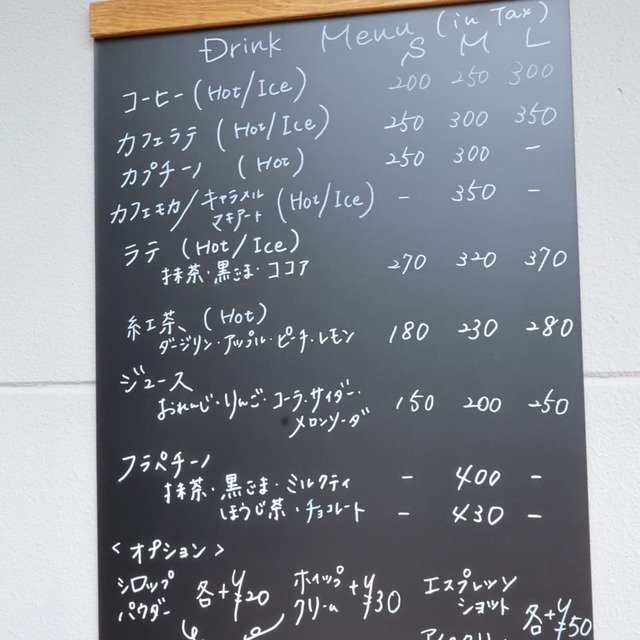 Drink Menu (in Tax)
S M L
コーヒー (Hot/Ice) 200 250 300
カフェラテ (Hot/Ice) 250 300 350
カプチーノ (Hot) 250 300 -
カフェモカ/キャラメルマキアート (Hot/Ice) - 350 -
ラテ (Hot/Ice)
抹茶・黒ごま・ココア 270 320 370
紅茶、(Hot)
ダージリン・アップル・ピーチ・レモン 180 230 280
ジュース
おれんじ・りんご・コーラ・サイダー・ 150 200 250
メロンソーダ
フラペチーノ
抹茶・黒ごま・ミルクティ - 400 -
ほうじ茶・チョコレート - 430 -
<オプション>
シロップ パウダー 各+¥20 ホイップ クリーム +¥30 エスプレッソ ショット 各+¥50